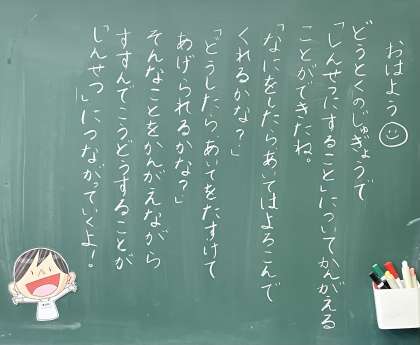 おはよう
どうとくのじゅぎょうで
「しんせつにすること」についてかんがえる
ことができたね。
「なにをしたらあいてはよろこんで
くれるかな?」
「どうしたらあいてをたすけて
あげられるかな?」
そんなことをかんがえながら
すすんでこうどうすることが
「しんせつ」につながっていくよ!